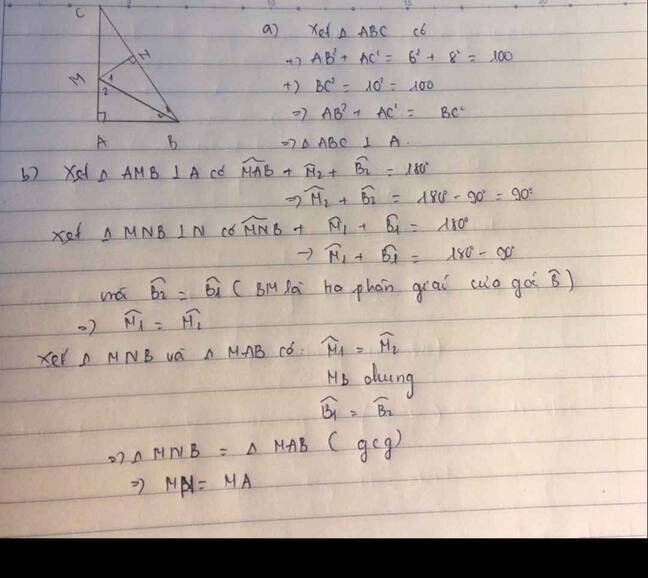 C
N
M
1
2
A
B
a) Xét Δ ABC có
+) AB² + AC² = 6² + 8² = 100
+) BC² = 10² = 100
=> AB² + AC² = BC²
=> Δ ABC ⊥ A.
b) Xét Δ AMB ⊥ A có M̂AB + M̂₂ + B̂₂ = 180°
=> M̂₂ + B̂₂ = 180° - 90° = 90°
Xét Δ MNB ⊥ N có M̂NB + M̂₁ + B̂₁ = 180°
-> M̂₁ + B̂₁ = 180° - 90°
mà B̂₂ = B̂₁ ( BM là tia phân giác của góc B̂ )
=> M̂₁ = M̂₂
Xét Δ MNB và Δ MAB có: M̂₁ = M̂₂
MB chung
B̂₁ = B̂₂
=> Δ MNB = Δ MAB ( gcg)
=> MN = MA